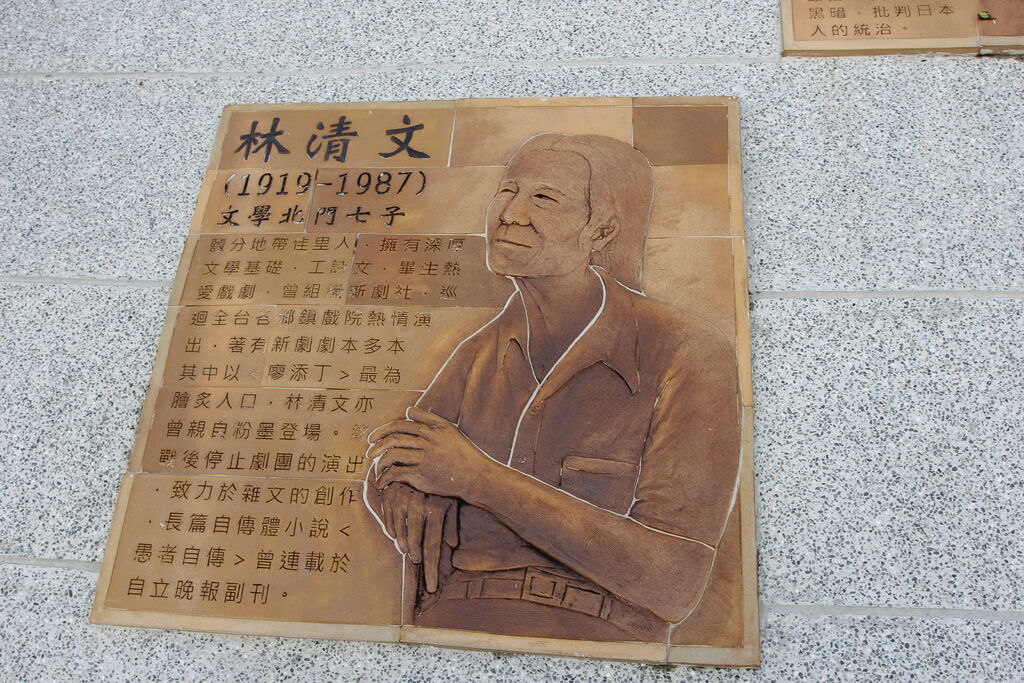 黑暗，批判日本
人的統治。
林清文
(1919-1987)
文學北門七子
分地帶佳里人，擁有深厚
文學基礎，工詩文，畢生熱
愛戲劇，曾組織新劇社，巡
迴全台各鄉鎮戲院熱情演
出，著有新劇劇本多本
其中以<廖添丁>最為
膾炙人口，林清文亦
曾親自粉墨登場。
戰後停止劇團的演出
，致力於雜文的創作
，長篇自傳體小說<
愚者自傳>曾連載於
自立晚報副刊。